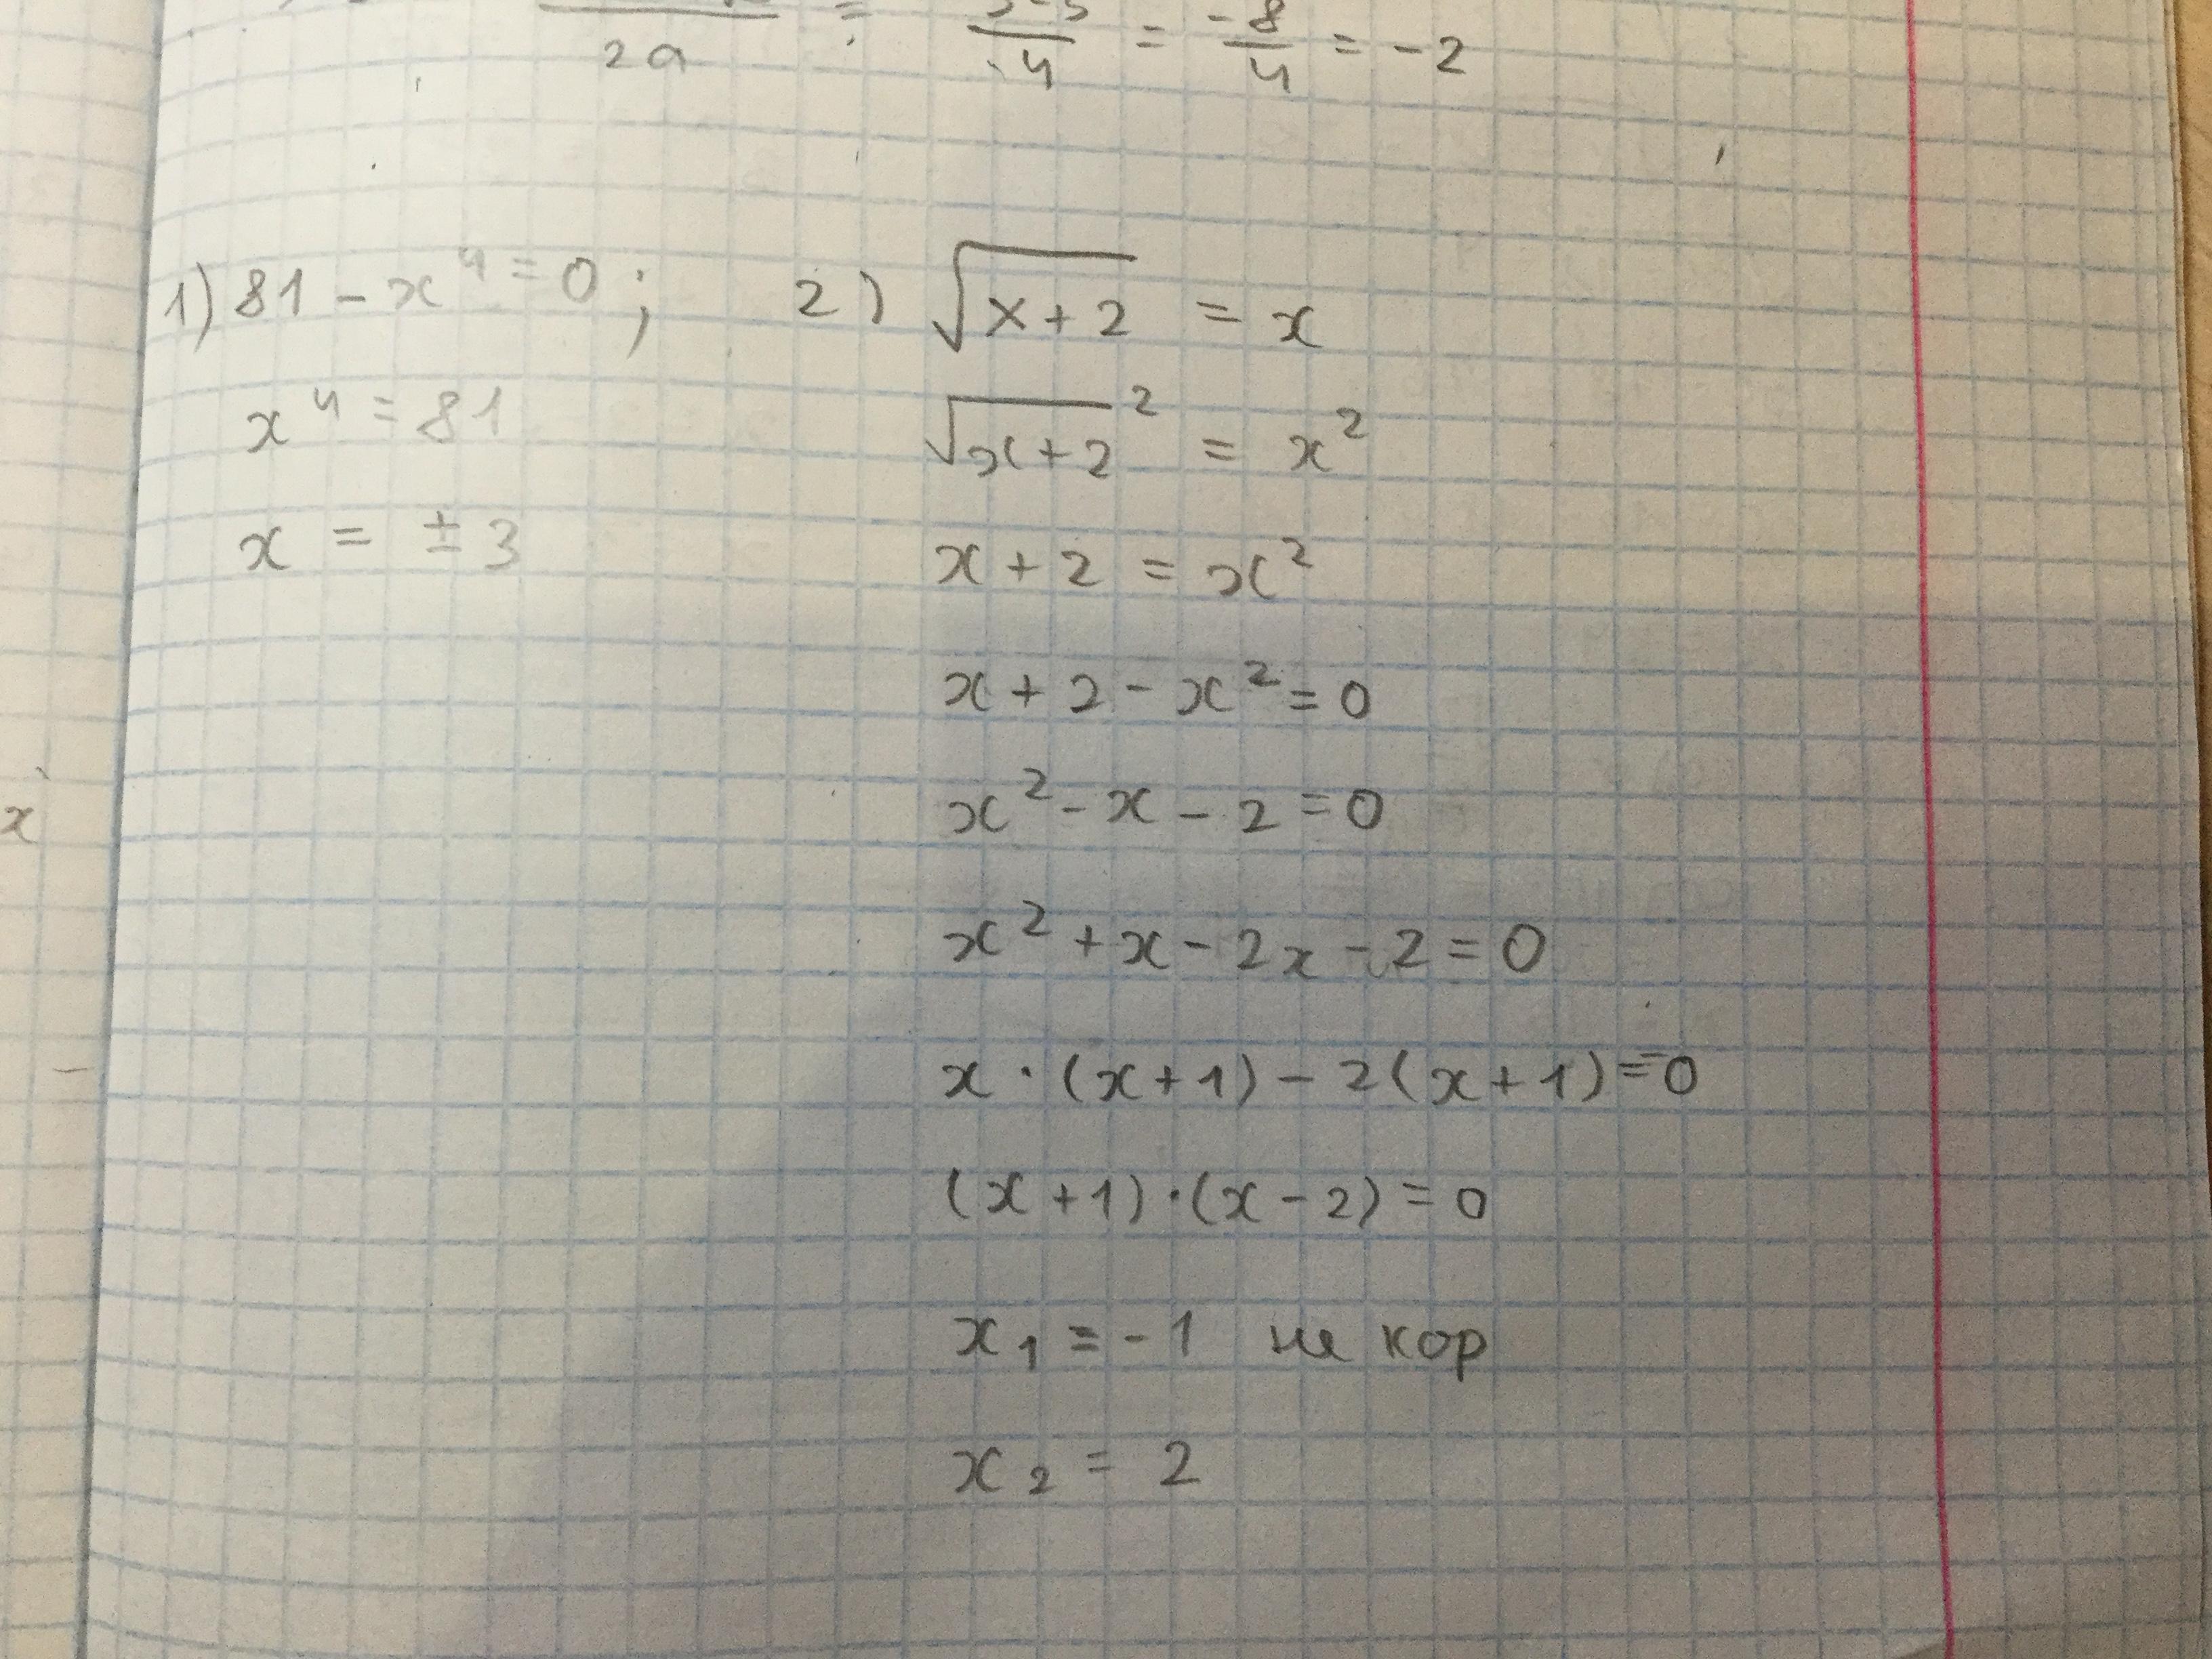 2a = -4 = -8/4 = -2
1) 81 - x⁴ = 0 ;
x⁴ = 81
x = ± 3
2) √(x+2) = x
√(x+2)² = x²
x + 2 = x²
x + 2 - x² = 0
x² - x - 2 = 0
x² + x - 2x - 2 = 0
x · (x+1) - 2(x+1) = 0
(x+1)·(x-2) = 0
x₁ = -1 не кор
x₂ = 2
x